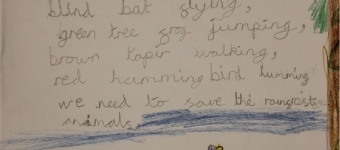 blind bat flying,
green tree frog jumping,
brown tapir walking,
red humming bird humming
we need to save the rangrists
animals